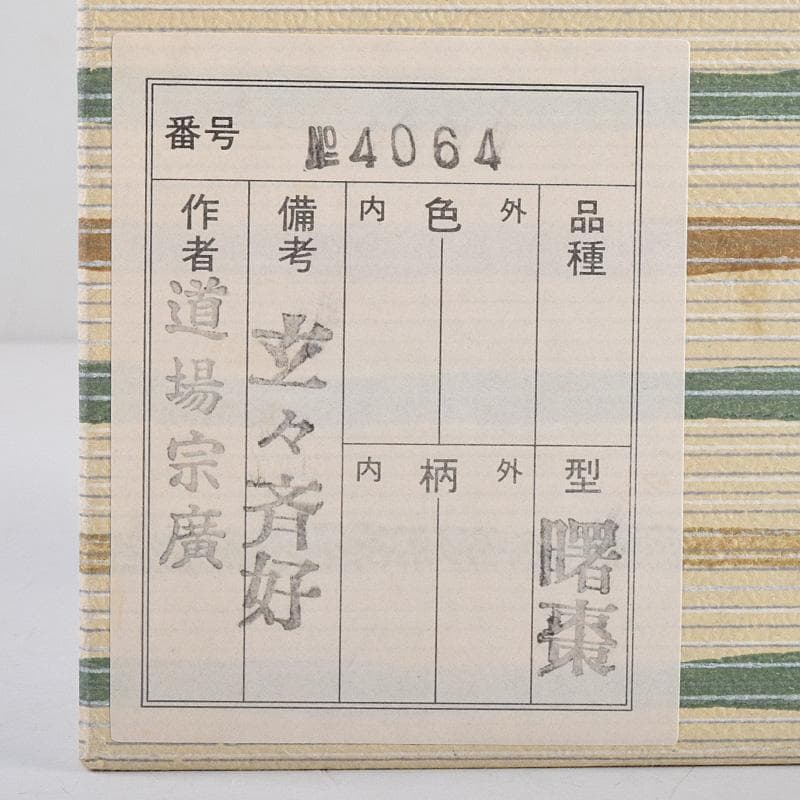 番号 №4064
品種
外 色 内
型 曙棗
外 柄 内
備考 立々斉好
作者 道場宗廣